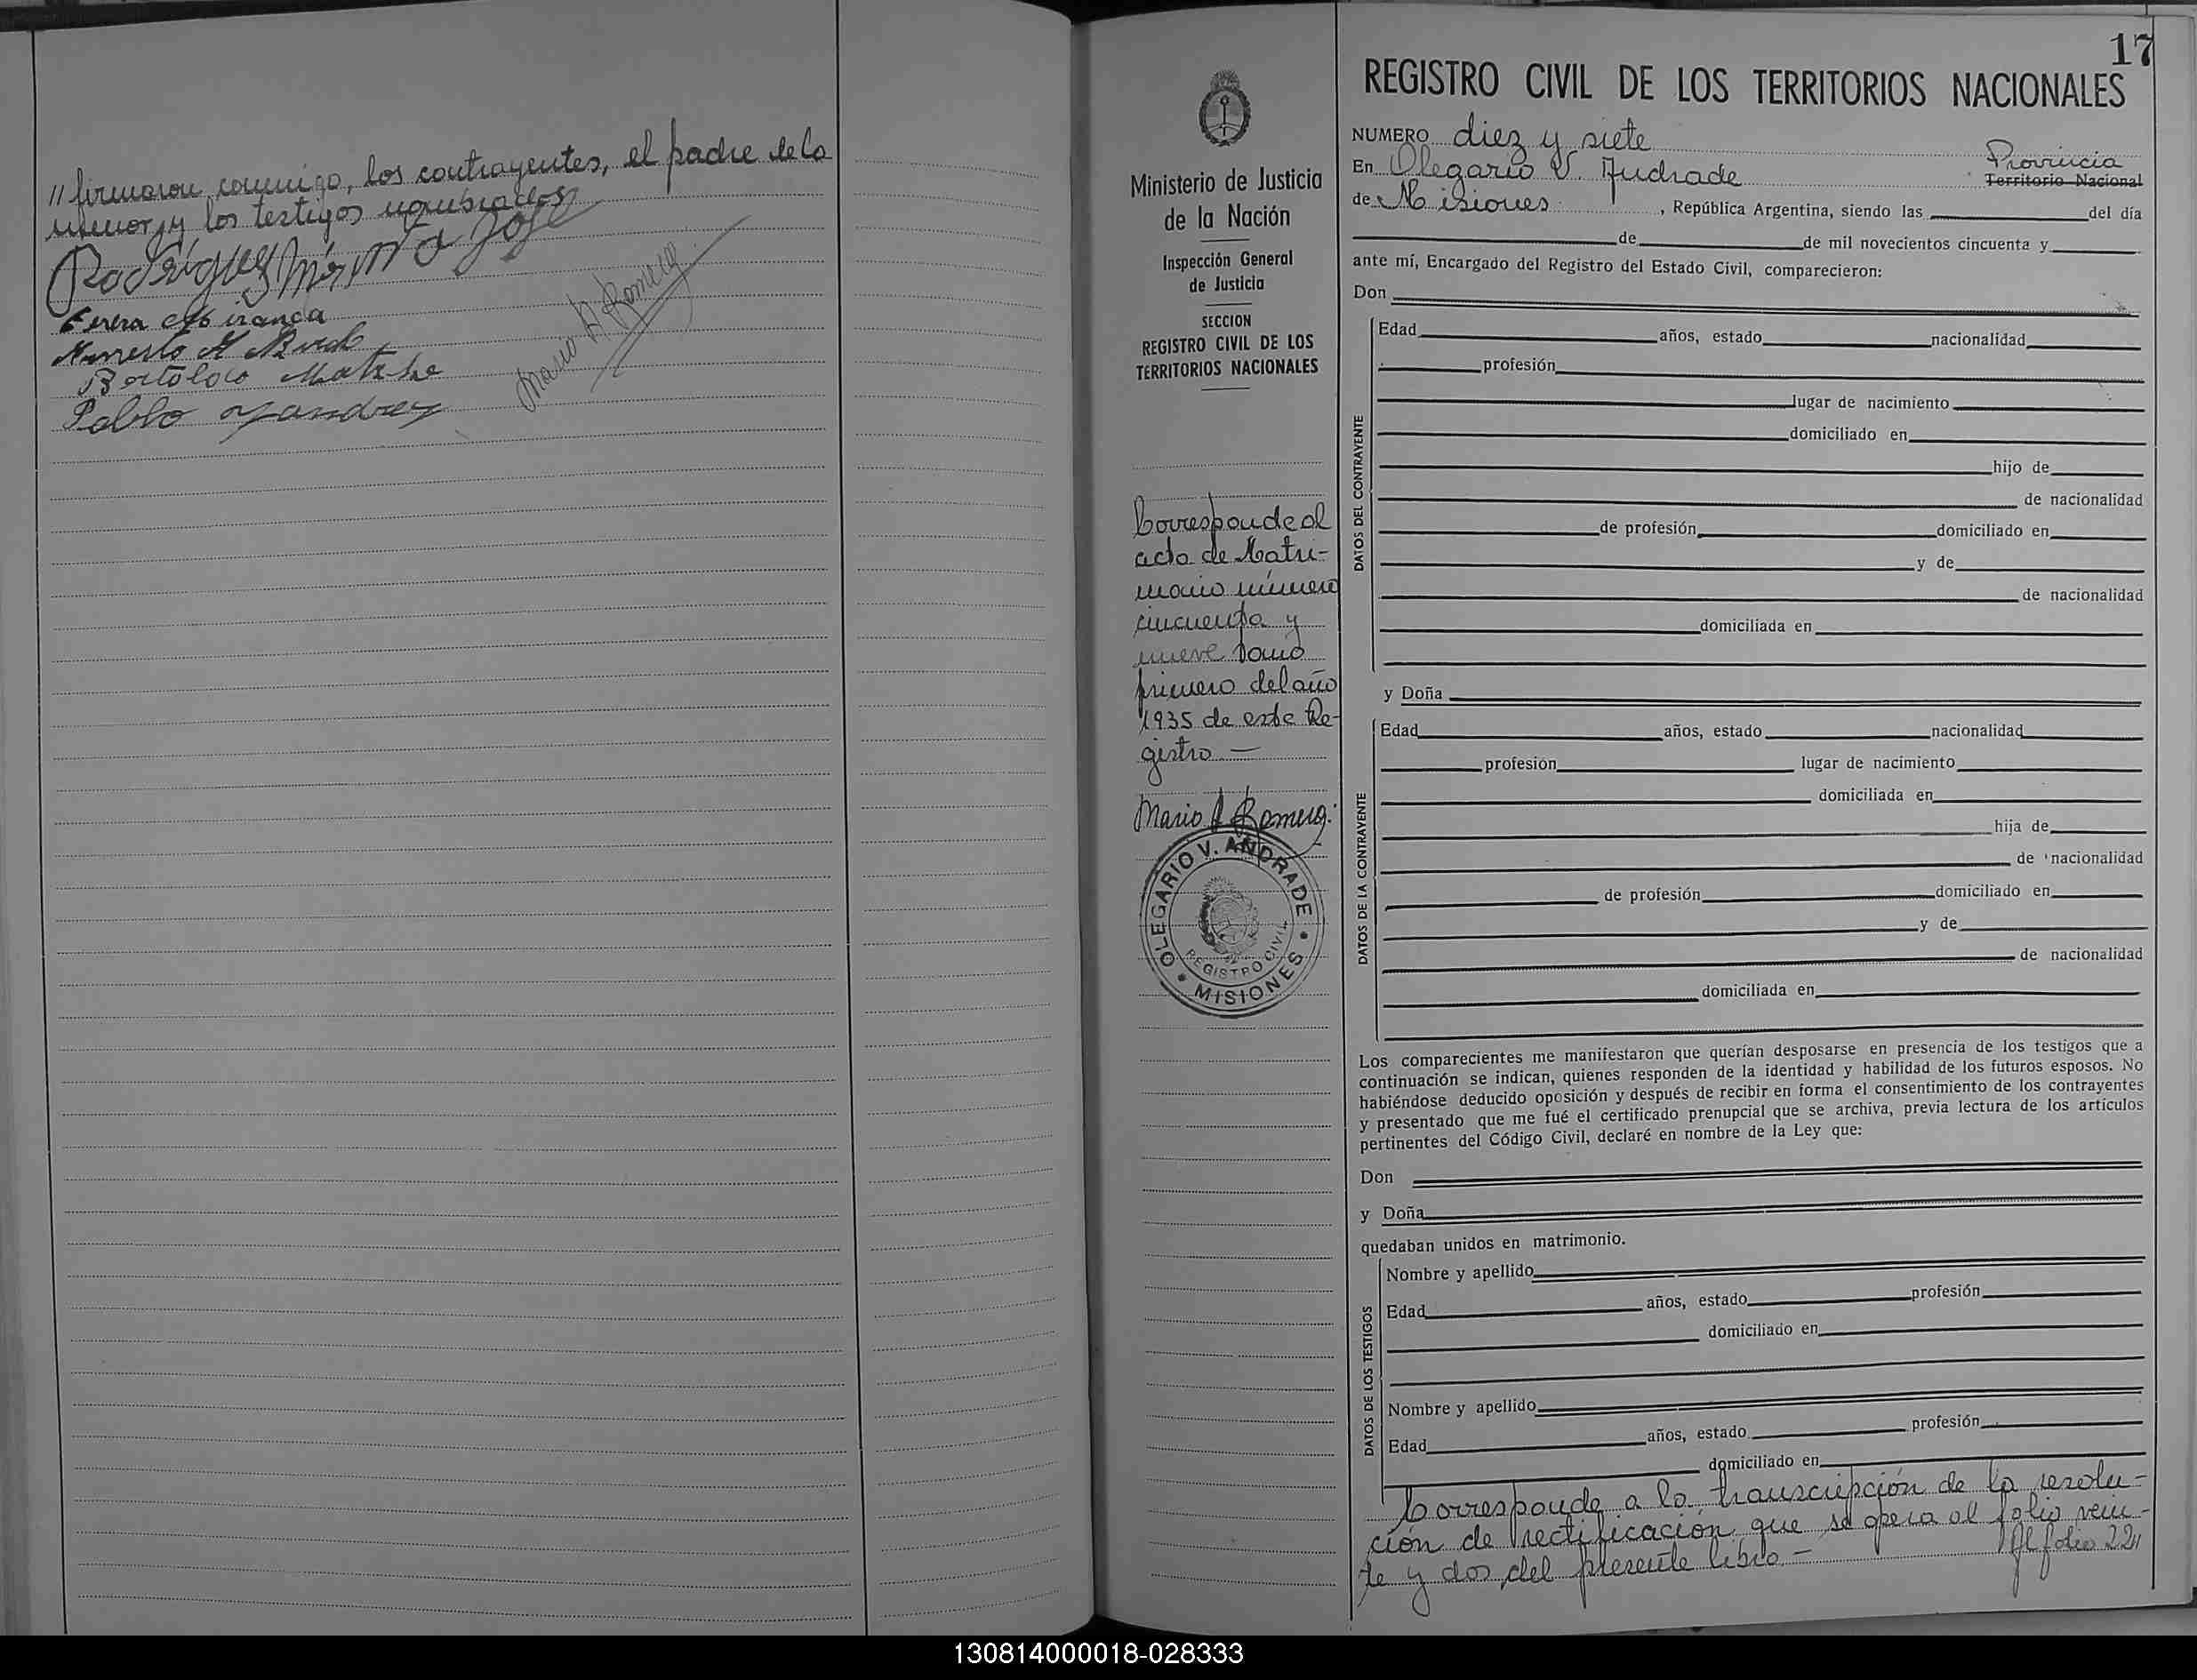 // firmaron conmigo, los contrayentes, el padre de la
menor, y los testigos nombrados
Rodríguez Mírinta José
Teresa Miranda
Ernesto A
Bertoldo Matzke
Pablo Yandrey
Mario A Romera
Ministerio de Justicia
de la Nación
Inspección General
de Justicia
SECCION
REGISTRO CIVIL DE LOS
TERRITORIOS NACIONALES
Corresponde al
acta de Matri-
monio número
cincuenta y
nueve tomo
primero del año
1935 de este Re-
gistro —
Mario A Romera
OLEGARIO V. ANDRADE
REGISTRO CIVIL
MISIONES
17
REGISTRO CIVIL DE LOS TERRITORIOS NACIONALES
NUMERO diez y siete
Provincia
En Olegario V. Andrade Territorio Nacional
de Misiones, República Argentina, siendo las del día
de de mil novecientos cincuenta y
ante mí, Encargado del Registro del Estado Civil, comparecieron:
Don
DATOS DEL CONTRAYENTE
Edad años, estado nacionalidad
profesión
lugar de nacimiento
domiciliado en
hijo de
de nacionalidad
de profesión domiciliado en
y de
de nacionalidad
domiciliada en
y Doña
DATOS DE LA CONTRAYENTE
Edad años, estado nacionalidad
profesión lugar de nacimiento
domiciliada en
hija de
de nacionalidad
de profesión domiciliado en
y de
de nacionalidad
domiciliada en
Los comparecientes me manifestaron que querían desposarse en presencia de los testigos que a
continuación se indican, quienes responden de la identidad y habilidad de los futuros esposos. No
habiéndose deducido oposición y después de recibir en forma el consentimiento de los contrayentes
y presentado que me fué el certificado prenupcial que se archiva, previa lectura de los artículos
pertinentes del Código Civil, declaré en nombre de la Ley que:
Don
y Doña
quedaban unidos en matrimonio.
DATOS DE LOS TESTIGOS
Nombre y apellido
Edad años, estado profesión
domiciliado en
Nombre y apellido
Edad años, estado profesión
domiciliado en
Corresponde a la transcripción de la resolu-
ción de rectificación que se opera al folio vein-
te y dos del presente libro — Al folio 22//
130814000018-028333